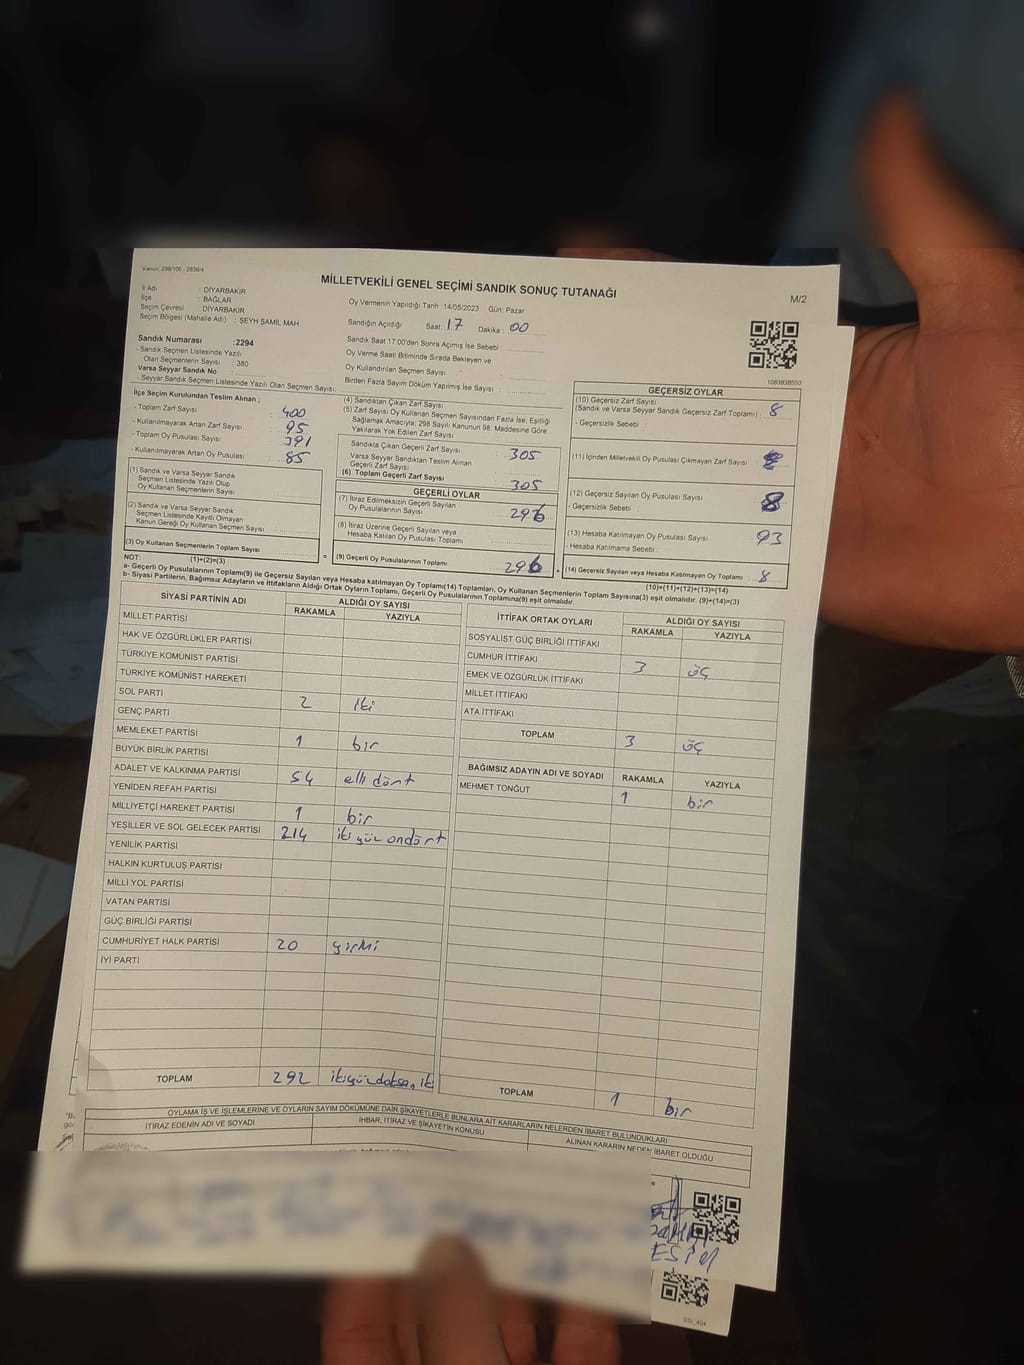 Kanun: 298/105 ; 2839/4
MİLLETVEKİLİ GENEL SEÇİMİ SANDIK SONUÇ TUTANAĞI
M/2
İl Adı : DİYARBAKIR
İlçe : BAĞLAR
Seçim Çevresi : DİYARBAKIR
Seçim Bölgesi (Mahalle Adı) : ŞEYH ŞAMİL MAH
Oy Vermenin Yapıldığı Tarih :14/05/2023 Gün: Pazar
Sandığın Açıldığı Saat: 17 Dakika : 00
Sandık Saat 17:00'den Sonra Açımış İse Sebebi :
Oy Verme Saati Bitiminde Sırada Bekleyen ve
Oy Kullandırılan Seçmen Sayısı :
Birden Fazla Sayım Döküm Yapılmış İse Sayısı :
1083838550
Sandık Numarası :2294
- Sandık Seçmen Listesinde Yazılı
Olan Seçmenlerin Sayısı : 380
Varsa Seyyar Sandık No :
- Seyyar Sandık Seçmen Listesinde Yazılı Olan Seçmen Sayısı:
İlçe Seçim Kurulundan Teslim Alınan ;
- Toplam Zarf Sayısı : 400
- Kullanılmayarak Artan Zarf Sayısı : 95
- Toplam Oy Pusulası Sayısı : 391
- Kullanılmayarak Artan Oy Pusulası : 85
(1) Sandık ve Varsa Seyyar Sandık
Seçmen Listesinde Yazılı Olup
Oy Kullanan Seçmenlerin Sayısı :
(2) Sandık ve Varsa Seyyar Sandık
Seçmen Listesinde Kayıtlı Olmayan
Kanun Gereği Oy Kullanan Seçmen Sayısı :
(3) Oy Kullanan Seçmenlerin Toplam Sayısı
(1)+(2)=(3)
(4) Sandıktan Çıkan Zarf Sayısı :
(5) Zarf Sayısı Oy Kullanan Seçmen Sayısından Fazla İse, Eşitliği
Sağlamak Amacıyla; 298 Sayılı Kanunun 98. Maddesine Göre
Yakılarak Yok Edilen Zarf Sayısı :
Sandıkta Çıkan Geçerli Zarf Sayısı : 305
Varsa Seyyar Sandıktan Teslim Alınan
Geçerli Zarf Sayısı :
(6) Toplam Geçerli Zarf Sayısı : 305
GEÇERLİ OYLAR
(7) İtiraz Edilmeksizin Geçerli Sayılan
Oy Pusulalarının Sayısı : 296
(8) İtiraz Üzerine Geçerli Sayılan veya
Hesaba Katılan Oy Pusulası Toplamı :
= (9) Geçerli Oy Pusulalarının Toplamı 296
GEÇERSİZ OYLAR
(10) Geçersiz Zarf Sayısı
(Sandık ve Varsa Seyyar Sandık Geçersiz Zarf Toplamı) : 8
- Geçersizlik Sebebi :
(11) İçinden Milletvekili Oy Pusulası Çıkmayan Zarf Sayısı :
(12) Geçersiz Sayılan Oy Pusulası Sayısı : 8
- Geçersizlik Sebebi :
(13) Hesaba Katılmayan Oy Pusulası Sayısı : 93
- Hesaba Katılmama Sebebi :
+ (14) Geçersiz Sayılan veya Hesaba Katılmayan Oy Toplamı : 8
(10)+(11)+(12)+(13)=(14)
NOT:
a- Geçerli Oy Pusulalarının Toplamı(9) ile Geçersiz Sayılan veya Hesaba katılmayan Oy Toplamı(14) Toplamları, Oy Kullanan Seçmenlerin Toplam Sayısına(3) eşit olmalıdır. (9)+(14)=(3)
b- Siyasi Partilerin, Bağımsız Adayların ve İttifakların Aldığı Ortak Oyların Toplamı, Geçerli Oy Pusulalarının Toplamına(9) eşit olmalıdır.
SİYASİ PARTİNİN ADI ALDIĞI OY SAYISI
RAKAMLA YAZIYLA
MİLLET PARTİSİ
HAK VE ÖZGÜRLÜKLER PARTİSİ
TÜRKİYE KOMÜNİST PARTİSİ
TÜRKİYE KOMÜNİST HAREKETİ
SOL PARTİ 2 iki
GENÇ PARTİ
MEMLEKET PARTİSİ 1 bir
BÜYÜK BİRLİK PARTİSİ
ADALET VE KALKINMA PARTİSİ 54 elli dört
YENİDEN REFAH PARTİSİ
MİLLİYETÇİ HAREKET PARTİSİ 1 bir
YEŞİLLER VE SOL GELECEK PARTİSİ 214 ikiyüz ondört
YENİLİK PARTİSİ
HALKIN KURTULUŞ PARTİSİ
MİLLİ YOL PARTİSİ
VATAN PARTİSİ
GÜÇ BİRLİĞİ PARTİSİ
CUMHURİYET HALK PARTİSİ 20 yirmi
İYİ PARTİ
TOPLAM 292 ikiyüzdoksan iki
İTTİFAK ORTAK OYLARI ALDIĞI OY SAYISI
RAKAMLA YAZIYLA
SOSYALİST GÜÇ BİRLİĞİ İTTİFAKI
CUMHUR İTTİFAKI 3 üç
EMEK VE ÖZGÜRLÜK İTTİFAKI
MİLLET İTTİFAKI
ATA İTTİFAKI
TOPLAM 3 üç
BAĞIMSIZ ADAYIN ADI VE SOYADI RAKAMLA YAZIYLA
MEHMET TONĞUT 1 bir
TOPLAM 1 bir
OYLAMA İŞ VE İŞLEMLERİNE VE OYLARIN SAYIM DÖKÜMÜNE DAİR ŞİKAYETLERLE BUNLARA AİT KARARLARIN NELERDEN İBARET BULUNDUKLARI
İTİRAZ EDENİN ADI VE SOYADI İHBAR, İTİRAZ VE ŞİKAYETİN KONUSU ALINAN KARARIN NEDEN İBARET OLDUĞU